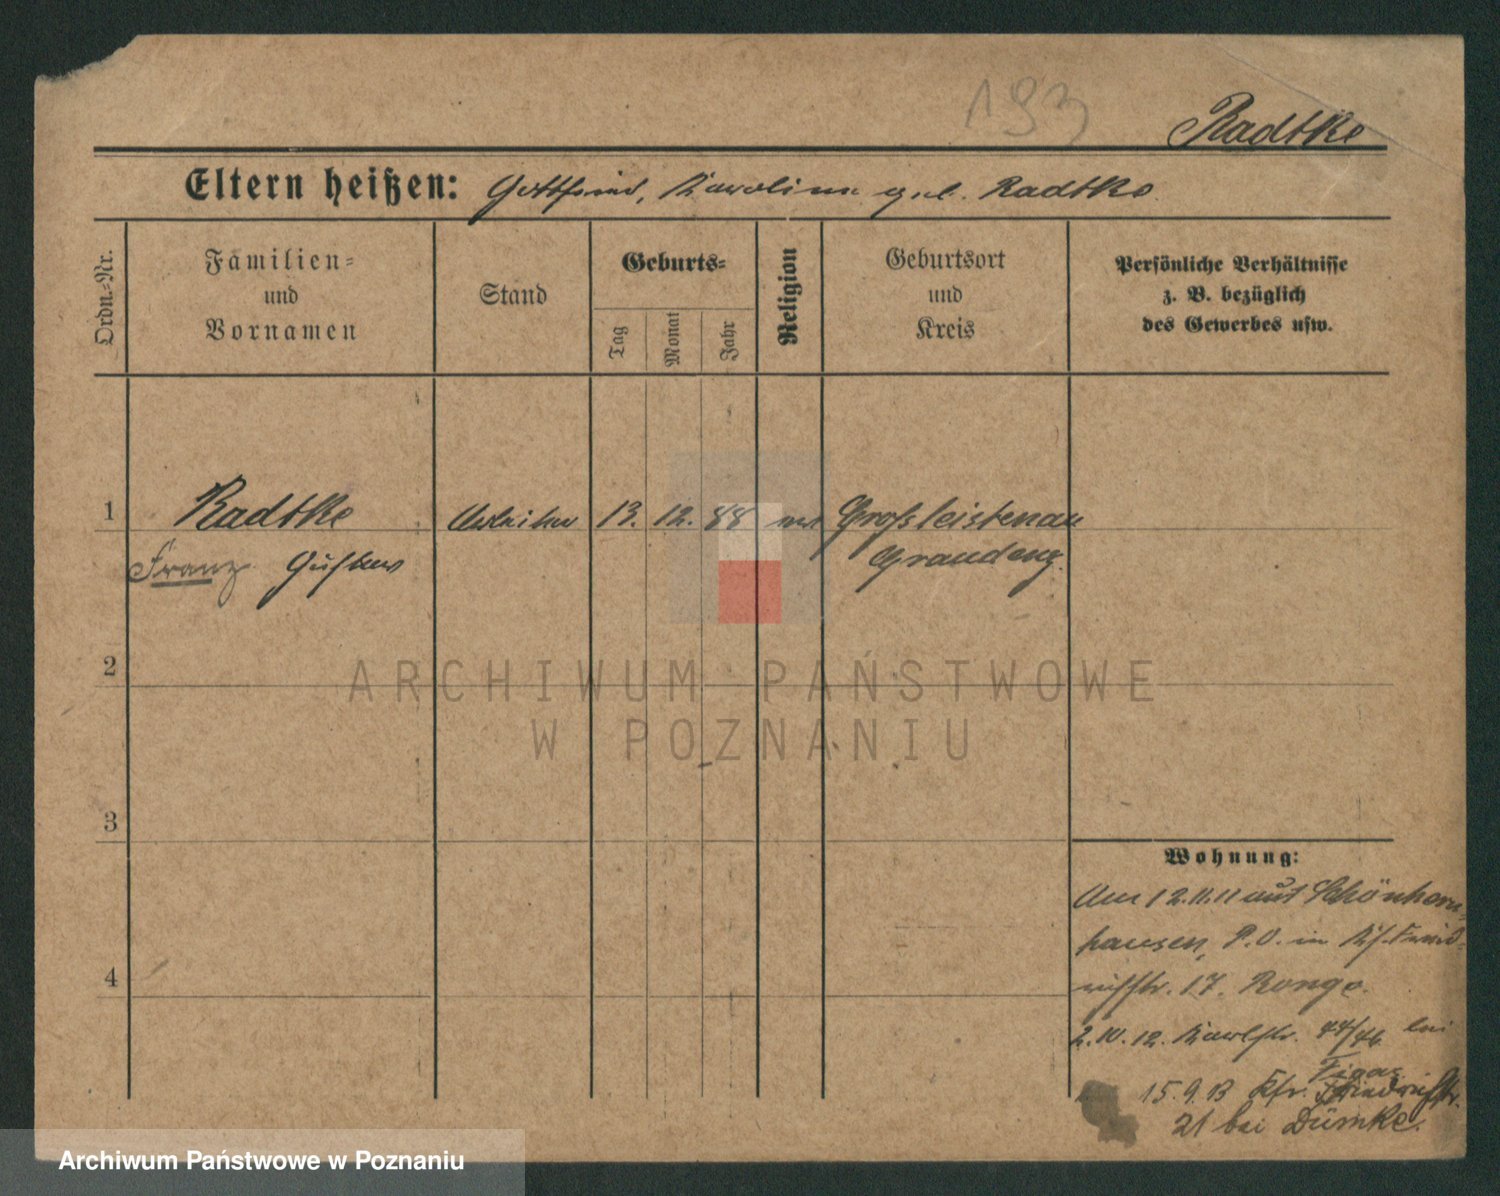 193
Radtke
Eltern heißen: Gottfried, Karoline geb. Radtke
Ordn.-Nr.
Familien-
und
Vornamen
Stand
Geburts-
Tag
Monat
Jahr
Religion
Geburtsort
und
Kreis
Persönliche Verhältnisse
z. B. bezüglich
des Gewerbes usw.
1 Radtke Arbeiter 13. 12. 88 Großleistenau
Franz Gustav Graudenz.
2
ARCHIWUM PAŃSTWOWE
W POZNANIU
3
4
Wohnung:
Am 12.11.11 aus Schönherrn-
hausen, P.O. in Kf. Fried-
richstr. 17. Ronge.
2.10.12. Karlstr. 44/46 bei
15.9.13 Friedrichstr.
21 bei Dümke.
Archiwum Państwowe w Poznaniu